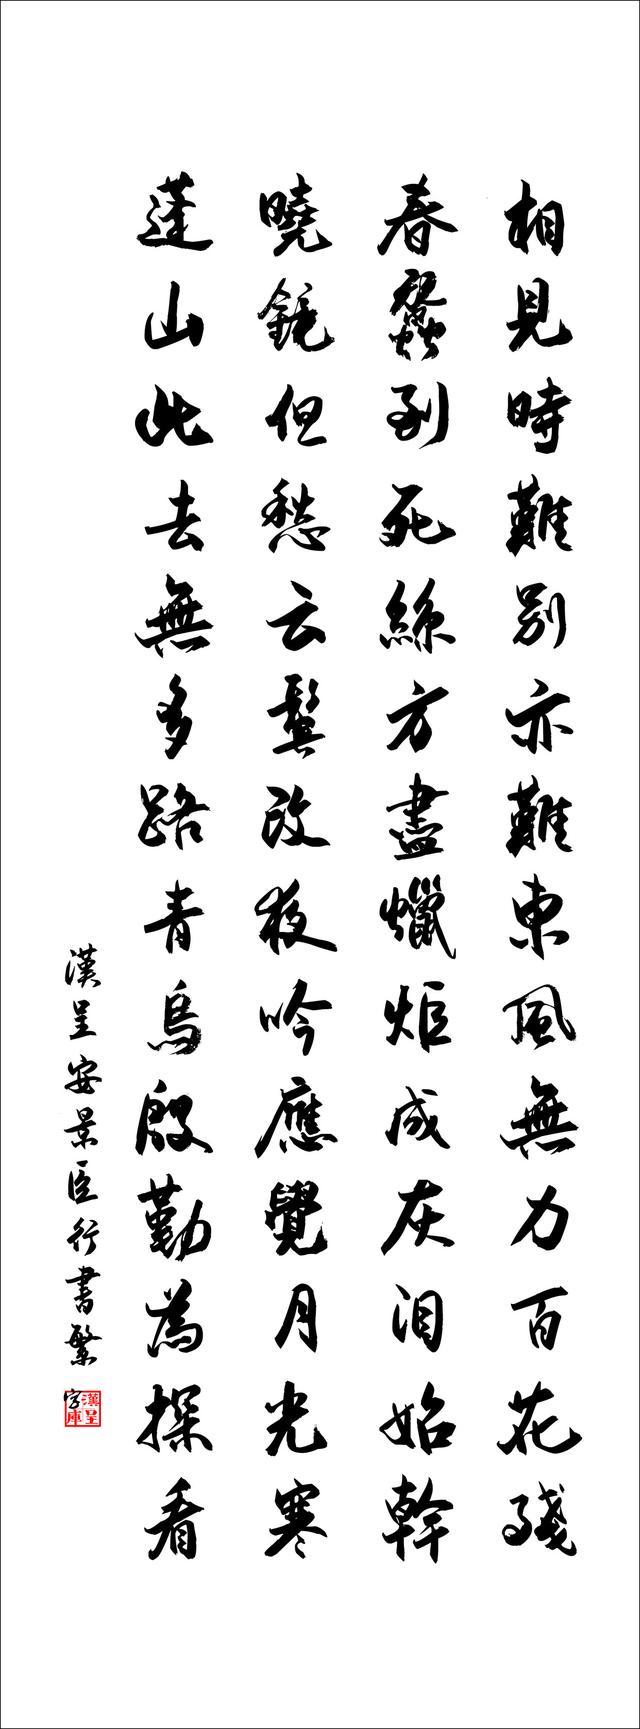 相見時難别亦難東風無力百花殘
春蠶到死絲方盡蠟炬成灰泪始幹
曉鏡但愁云鬓改夜吟應覺月光寒
蓬山此去無多路青鳥殷勤為探看
漢呈安景臣行書繁
漢呈字庫